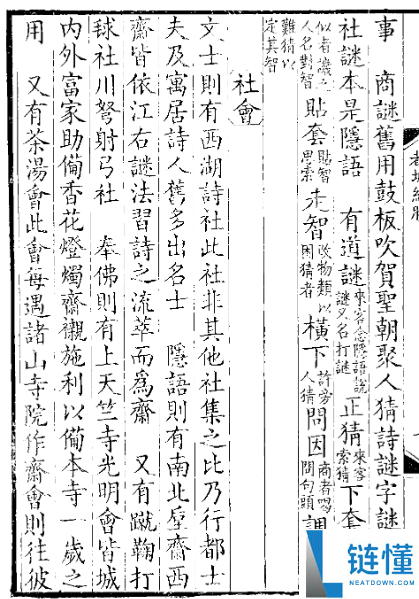 事 商謎舊用鼓板吹賀聖朝聚人猜詩謎字謎
社謎本是隱語 有道謎來客念隱語說謎又名打謎 正猜來客索猜 下套
似者譏之人名對智 貼套貼智思索 走智改物類以困猜者 橫下許旁人猜 問因商者喝問句頭 調
難猜以定其智
社會
文士則有西湖詩社此社非其他社集之比乃行都士
夫及寓居詩人舊多出名士 隱語則有南北垕齋西
齋皆依江右謎法習詩之流萃而爲齋 又有蹴鞠打
球社川弩射弓社 奉佛則有上天竺寺光明會皆城
內外富家助備香花燈燭齋襯施利以備本寺一歲之
用 又有茶湯會此會每遇諸山寺院作齋會則往彼
链懂
NEATDOWN.COM